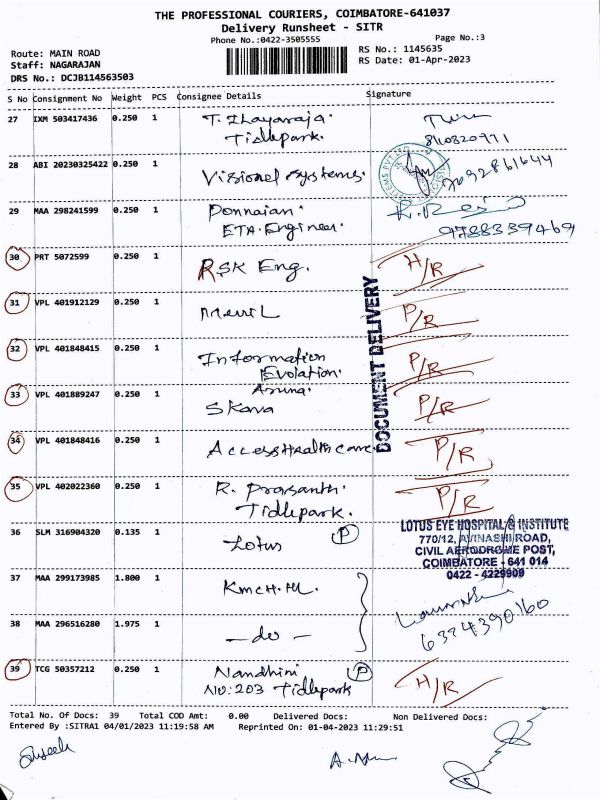 THE PROFESSIONAL COURIERS, COIMBATORE-641037
Delivery Runsheet - SITR
Phone No.:0422-3505555
Page No.:3
Route: MAIN ROAD
RS No.: 1145635
Staff: NAGARAJAN
RS Date: 01-Apr-2023
DRS No.: DCJB114563503
S No Consignment No Weight PCS Consignee Details Signature
27 IXM 503417436 0.250 1 T. Ilayaraja
Tidlepark.
28 ABI 20230325422 0.250 1 Visional Systems.
29 MAA 298241599 0.250 1 Ponnaian
ETA. Engineer
9788339469
30 PRT 5072599 0.250 1 RSK Eng. H/R
31 VPL 401912129 0.250 1 P/R
32 VPL 401848415 0.250 1 Information P/R
Evolation.
33 VPL 401889247 0.250 1 Aruna. P/R
Skava
34 VPL 401848416 0.250 1 Access Health care. P/R
35 VPL 402022360 0.250 1 R. Prasanth. P/R
Tidlepark.
DOCUMENT DELIVERY
36 SLM 316904320 0.135 1 Lotus P
LOTUS EYE HOSPITAL & INSTITUTE
770/12, AVINASHI ROAD,
CIVIL AERODROME POST,
COIMBATORE - 641 014
0422 - 4229900
37 MAA 299173985 1.800 1 KMCH. HL
38 MAA 296516280 1.975 1 - do -
6374390160
39 TCG 50357212 0.250 1 Nandhini P H/R
No: 203 Tidlepark
Total No. Of Docs: 39 Total COD Amt: 0.00 Delivered Docs: Non Delivered Docs:
Entered By :SITRA1 04/01/2023 11:19:58 AM Reprinted On: 01-04-2023 11:29:51